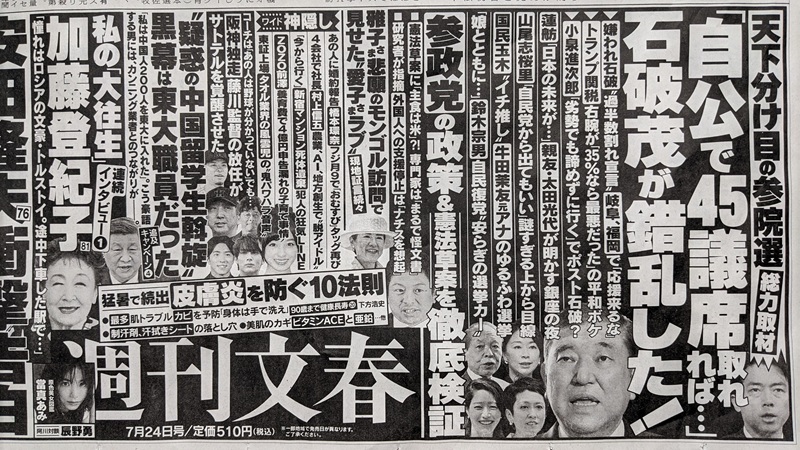 天下分け目の参院選
総力取材
「自公で45議席取れれば…」
石破茂が錯乱した!
嫌われ石破“過半数割れ宣言”岐阜、福岡で「応援来るな」
トランプ関税 右腕が「35%なら最悪」だったの平和ボケ
小泉進次郎 “劣勢でも諦めずに行く”でポスト石破?
蓮舫「日本の未来が…」親友・太田光代が明かす銀座の夜
山尾志桜里「自民党から出てもいい」謎すぎる上から目線
国民玉木“イチ推し”牛田茉友元アナのゆるふわ選挙
娘とともに… 鈴木宗男「自民復党が安らぎの選挙力」
参政党の政策&憲法草案を徹底検証
■憲法草案に“主食は米”?! 専門家は「まるで怪文書」
■研究者が指摘「外国人への支援停止はナチスを想起」
雅子さま悲願のモンゴル訪問で
見せた“愛子さまラブ”
現地証言続々
ワイド
神隠し
4会社で社長「井上信五」農業、AI、地方創生で「脱アイドル」
「今から行く」新宿マンション死体遺棄 犯人の狂気LINE
実証上場「タオル業界の風雲児」の“鬼パワハラ音声”
阪神独走 藤川監督の放任が
サトテルを覚醒させた
“疑惑の中国留学生斡旋”
黒幕は東大職員だった
追及キャンペーン②
「私は中国人200人を東大に入れた」。こう豪語
する男には、カンニング業者とのつながりが
私の「大往生」
連続インタビュー①
加藤登紀子
81
「憧れはロシアの文豪・トルストイ。途中下車した駅で…」
猛暑で続出 皮膚炎を防ぐ10法則
●最多肌トラブル カビを予防「身体は手で洗え」
90歳まで健康長寿⑳ 下方浩史
●制汗剤、汗拭きシートの落とし穴 ●美肌のカギ ビタミンACEと亜鉛
週刊文春
7月24日号/定価510円(税込)
※一部地域で発売日が異なります。ご了承ください。
原色美女図鑑
當真あみ
阿川対談 辰野勇
安田隆夫
76
衝撃告白